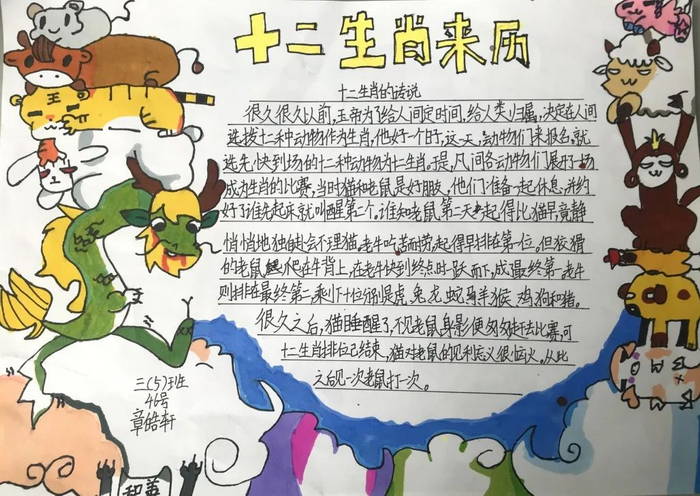 十二生肖来历
十二生肖的传说
很久很久以前，玉帝为了给人间定时间，给人类归属，决定在人间
选拔十二种动物作为生肖，他好个时，这一天，动物们来报名，就
选先，快到场的十二种动物为十二生肖。提，凡间各动物们展开了一场
成为生肖的比赛，当时猫和老鼠是好朋友，他们准备一起休息，并约
好了谁先起来就叫醒第二个。谁知老鼠第二天起得比猫早，竟静
悄悄地独自去会不理猫。老牛吃苦耐劳，起得早排在第一位，但狡猾
的老鼠爬在牛背上，在老牛快到终点时跃而下，成最终第一，老牛
则排在最终第二，剩下十位分别是虎、兔、龙、蛇、马、羊、猴、鸡、狗和猪。
很久之后，猫睡醒了，不见老鼠身影便匆匆赶去比赛，可
十二生肖排位已结束，猫对老鼠的见利忘义很恼火。从此
之后见一次老鼠打一次。
三（5）班
46号
章皓轩
王
和善